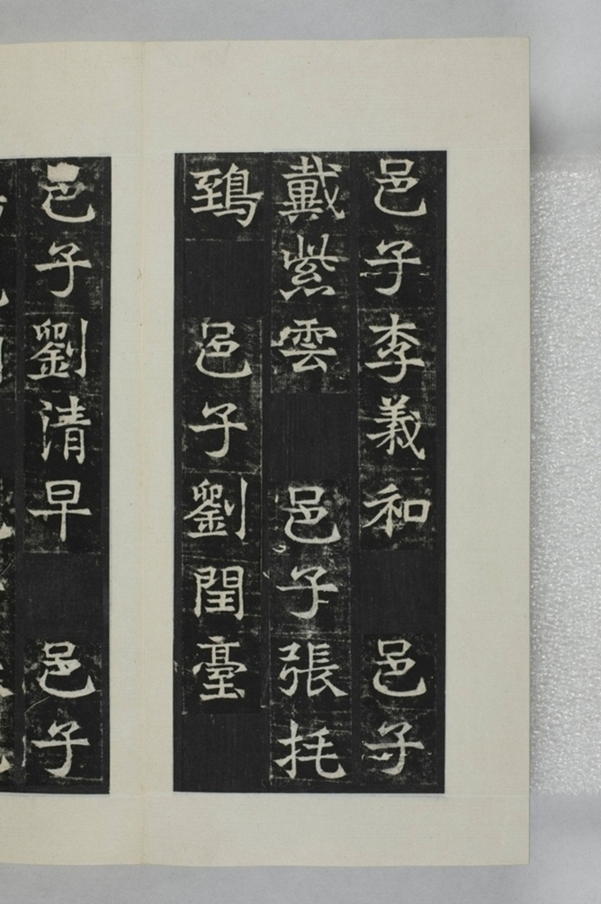 邑子李義和 邑子
戴紫雲 邑子張托
鵄 邑子劉閏臺
邑子劉清早 邑子